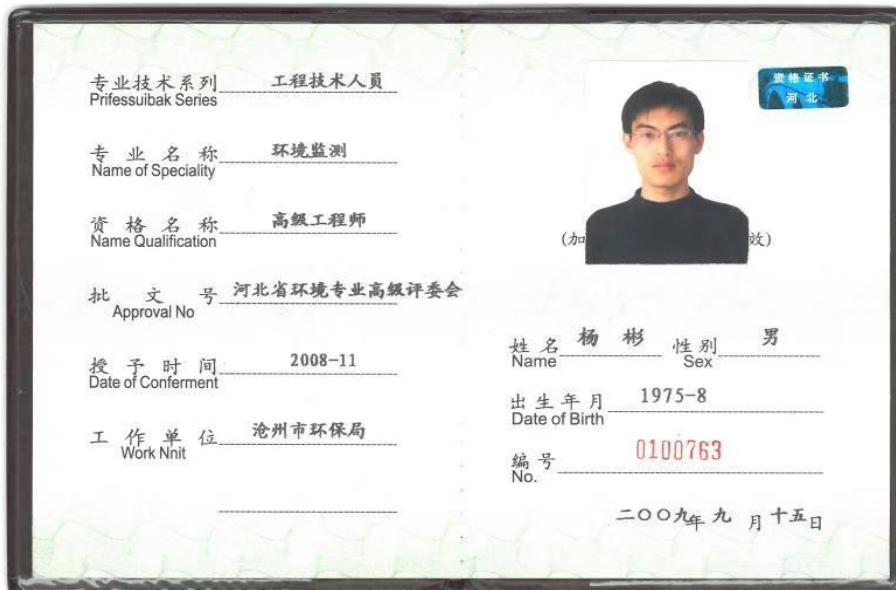 专业技术系列 工程技术人员
Prifessuibak Series
专业名称 环境监测
Name of Speciality
资格名称 高级工程师
Name Qualification
批文号 河北省环境专业高级评委会
Approval No
授予时间 2008-11
Date of Conferment
工作单位 沧州市环保局
Work Nnit
资格证书
河北
(加 效)
姓名 杨彬 性别 男
Name Sex
出生年月 1975-8
Date of Birth
编号 0100763
No.
二〇〇九年九月十五日